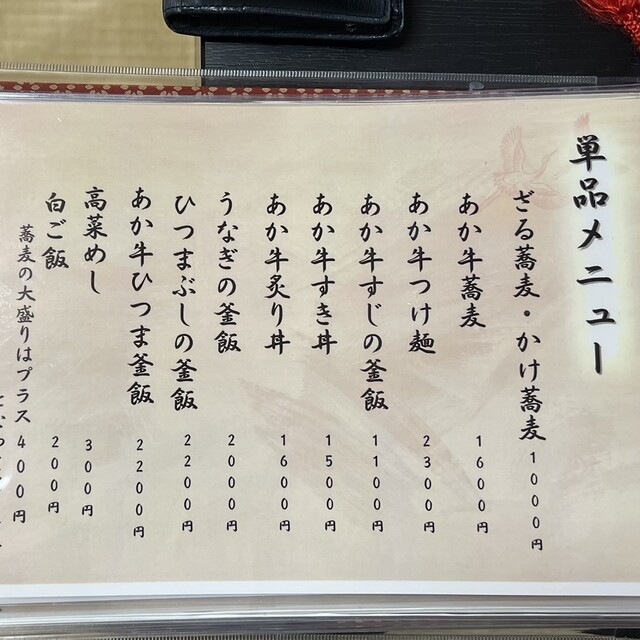 単品メニュー
ざる蕎麦・かけ蕎麦 1000円
あか牛蕎麦 1600円
あか牛つけ麺 2300円
あか牛すじの釜飯 1100円
あか牛すき丼 1500円
あか牛炙り丼 1600円
うなぎの釜飯 2000円
ひつまぶしの釜飯 2200円
あか牛ひつま釜飯 2200円
高菜めし 300円
白ご飯 200円
蕎麦の大盛りはプラス400円